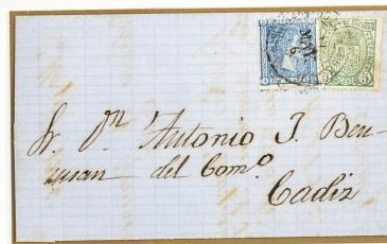 Sr. Dn Antonio J. Ben
susan del Como.
Cadiz